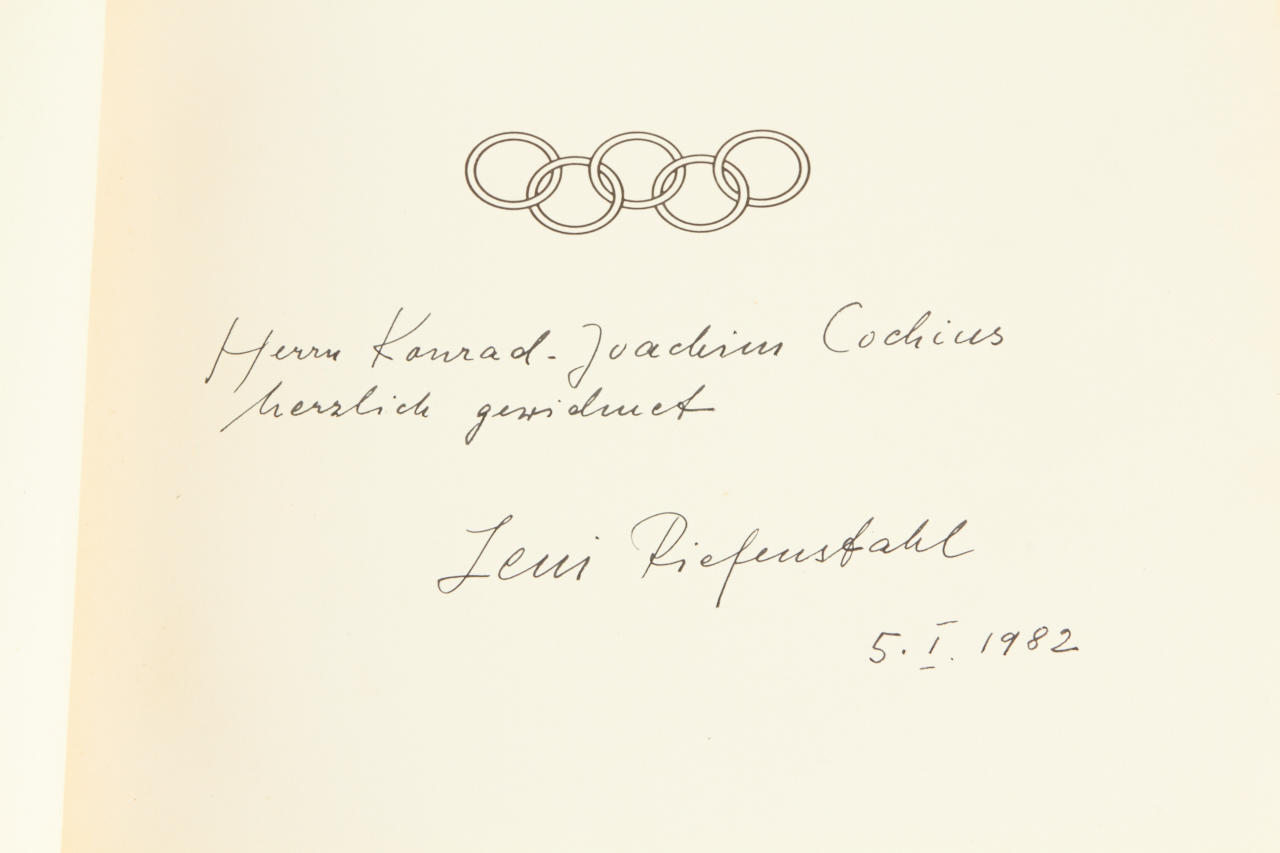 Herrn Konrad-Joachim Cochius
herzlich gewidmet
Leni Riefenstahl
5. I. 1982